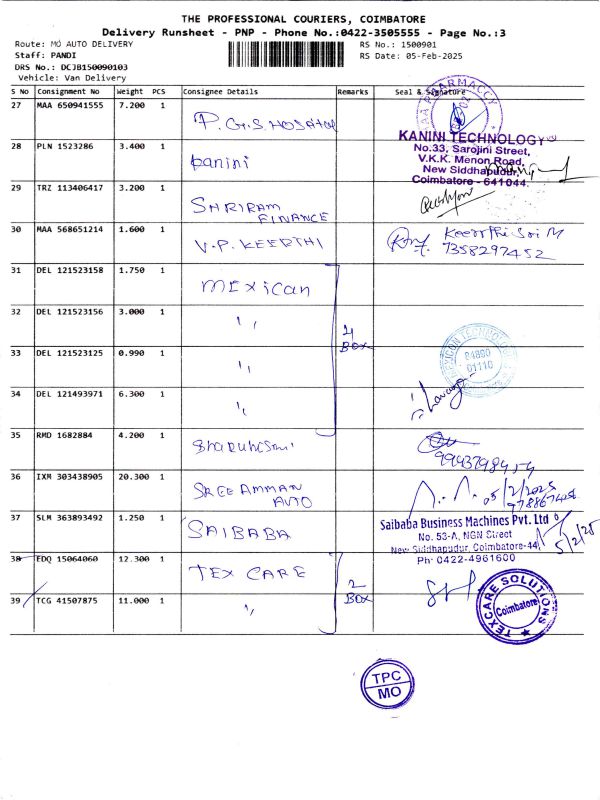 THE PROFESSIONAL COURIERS, COIMBATORE
Delivery Runsheet - PNP - Phone No.:0422-3505555 - Page No.:3
Route: MO AUTO DELIVERY
RS No.: 1500901
Staff: PANDI
RS Date: 05-Feb-2025
DRS No.: DCJB150090103
Vehicle: Van Delivery
S No Consignment No Weight PCS Consignee Details Remarks Seal & Signature
27 MAA 650941555 7.200 1 P.G.S. HOSPITAL
KANINI TECHNOLOGY
No.33, Sarojini Street,
V.K.K. Menon Road,
New Siddhapudur,
Coimbatore - 641044.
28 PLN 1523286 3.400 1 panini
29 TRZ 113406417 3.200 1 SHRIRAM
FINANCE
30 MAA 568651214 1.600 1 V.P. KEERTHI Keerthi Sri M
7358297452
31 DEL 121523158 1.750 1 MExican
32 DEL 121523156 3.000 1 "
4
BOX
33 DEL 121523125 0.990 1 "
34 DEL 121493971 6.300 1 "
35 RMD 1682884 4.200 1
36 IXM 303438905 20.300 1 SREE AMMAN
AUTO
05/2/2025
37 SLM 363893492 1.250 1 SAIBABA
Saibaba Business Machines Pvt. Ltd
No. 53-A, NGN Street
New Siddhapudur, Coimbatore-44
Ph: 0422-4961600
5/2/25
38 EDQ 15064060 12.300 1 TEX CARE
2
BOX
39 TCG 41507875 11.000 1 "
TEXCARE SOLUTIONS
Coimbatore
TPC
MO